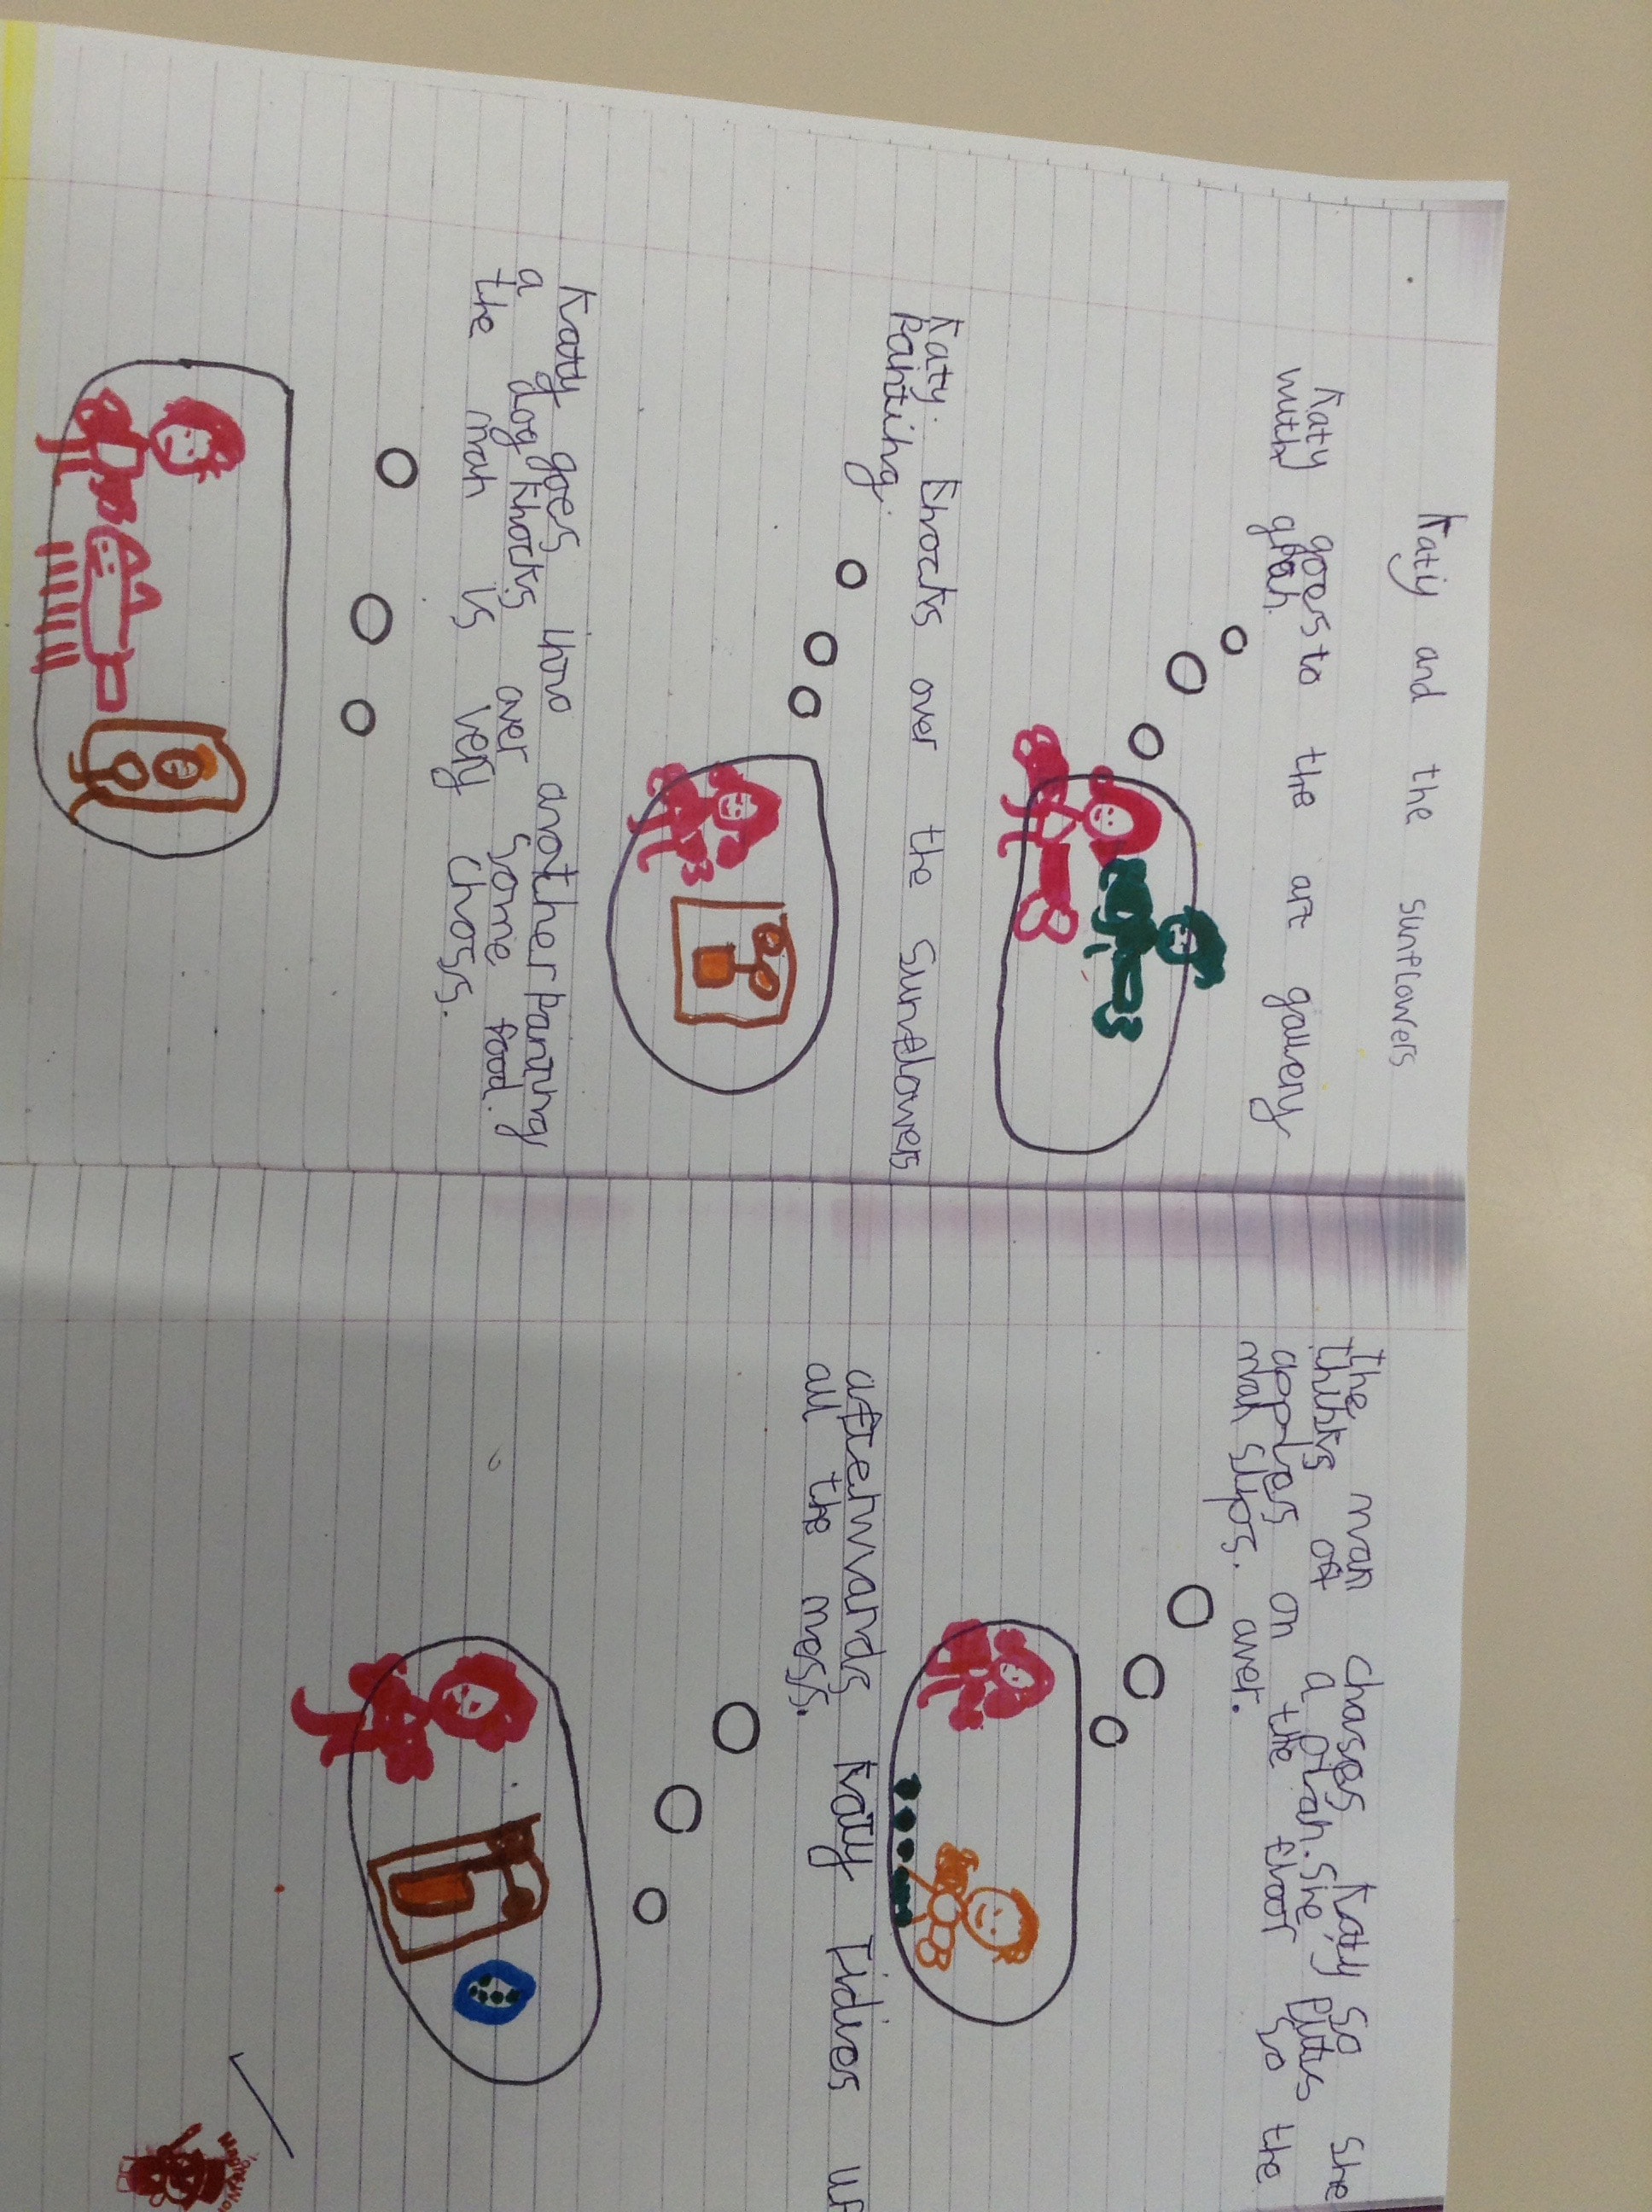 Katy and the sunflowers
Katy goes to the art gallery
with gran.
Katy. knocks over the sunflowers
Painting.
Katy goes into another painting
a dog knocks over some food.
the man is very cross.
the man chases Katy so she
thinks of a plan. she puts
apples on the floor so the
man slips. over.
afterwards Katy Tidies up
all the mess.